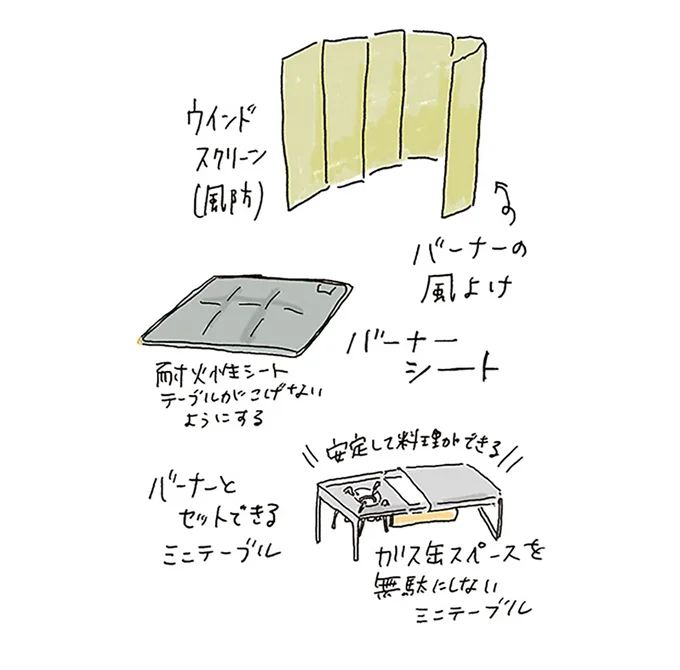 ウインド
スクリーン
(風防)
バーナーの
風よけ
バーナー
シート
耐火性シート
テーブルがこげない
ようにする
安定して料理ができる
バーナーと
セットできる
ミニテーブル
ガス缶スペースを
無駄にしない
ミニテーブル